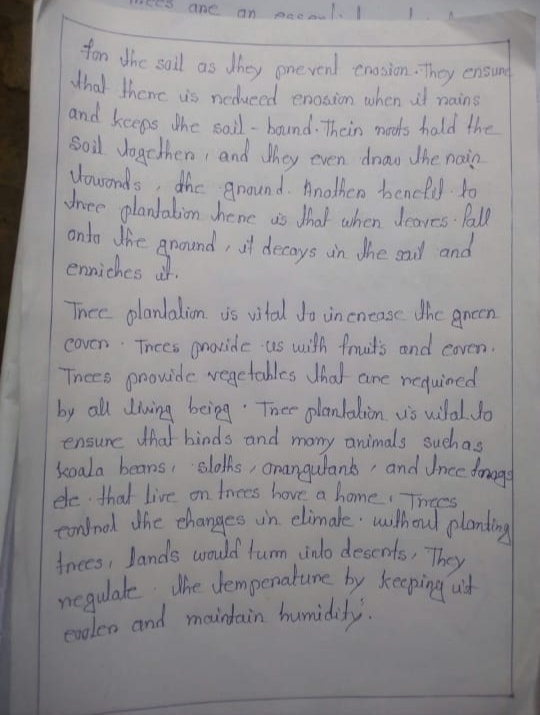 Trees are an
for the soil as they prevent erosion. They ensure
that there is reduced erosion when it rains
and keeps the soil-bound. Their roots hold the
soil together, and they even draw the rain
towards, the ground. Another benefit to
tree plantation here is that when leaves fall
onto the ground, it decays in the soil and
enriches it.
Tree plantation is vital to increase the green
cover. Trees provide us with fruits and cover.
Trees provide vegetables that are required
by all living being. Tree plantation is vital to
ensure that birds and many animals such as
koala bears, sloths, orangutans, and tree frogs
etc. that live on trees have a home. Trees
control the changes in climate. without planting
trees, lands would turn into deserts. They
regulate. the temperature by keeping it
cooler and maintain humidity.